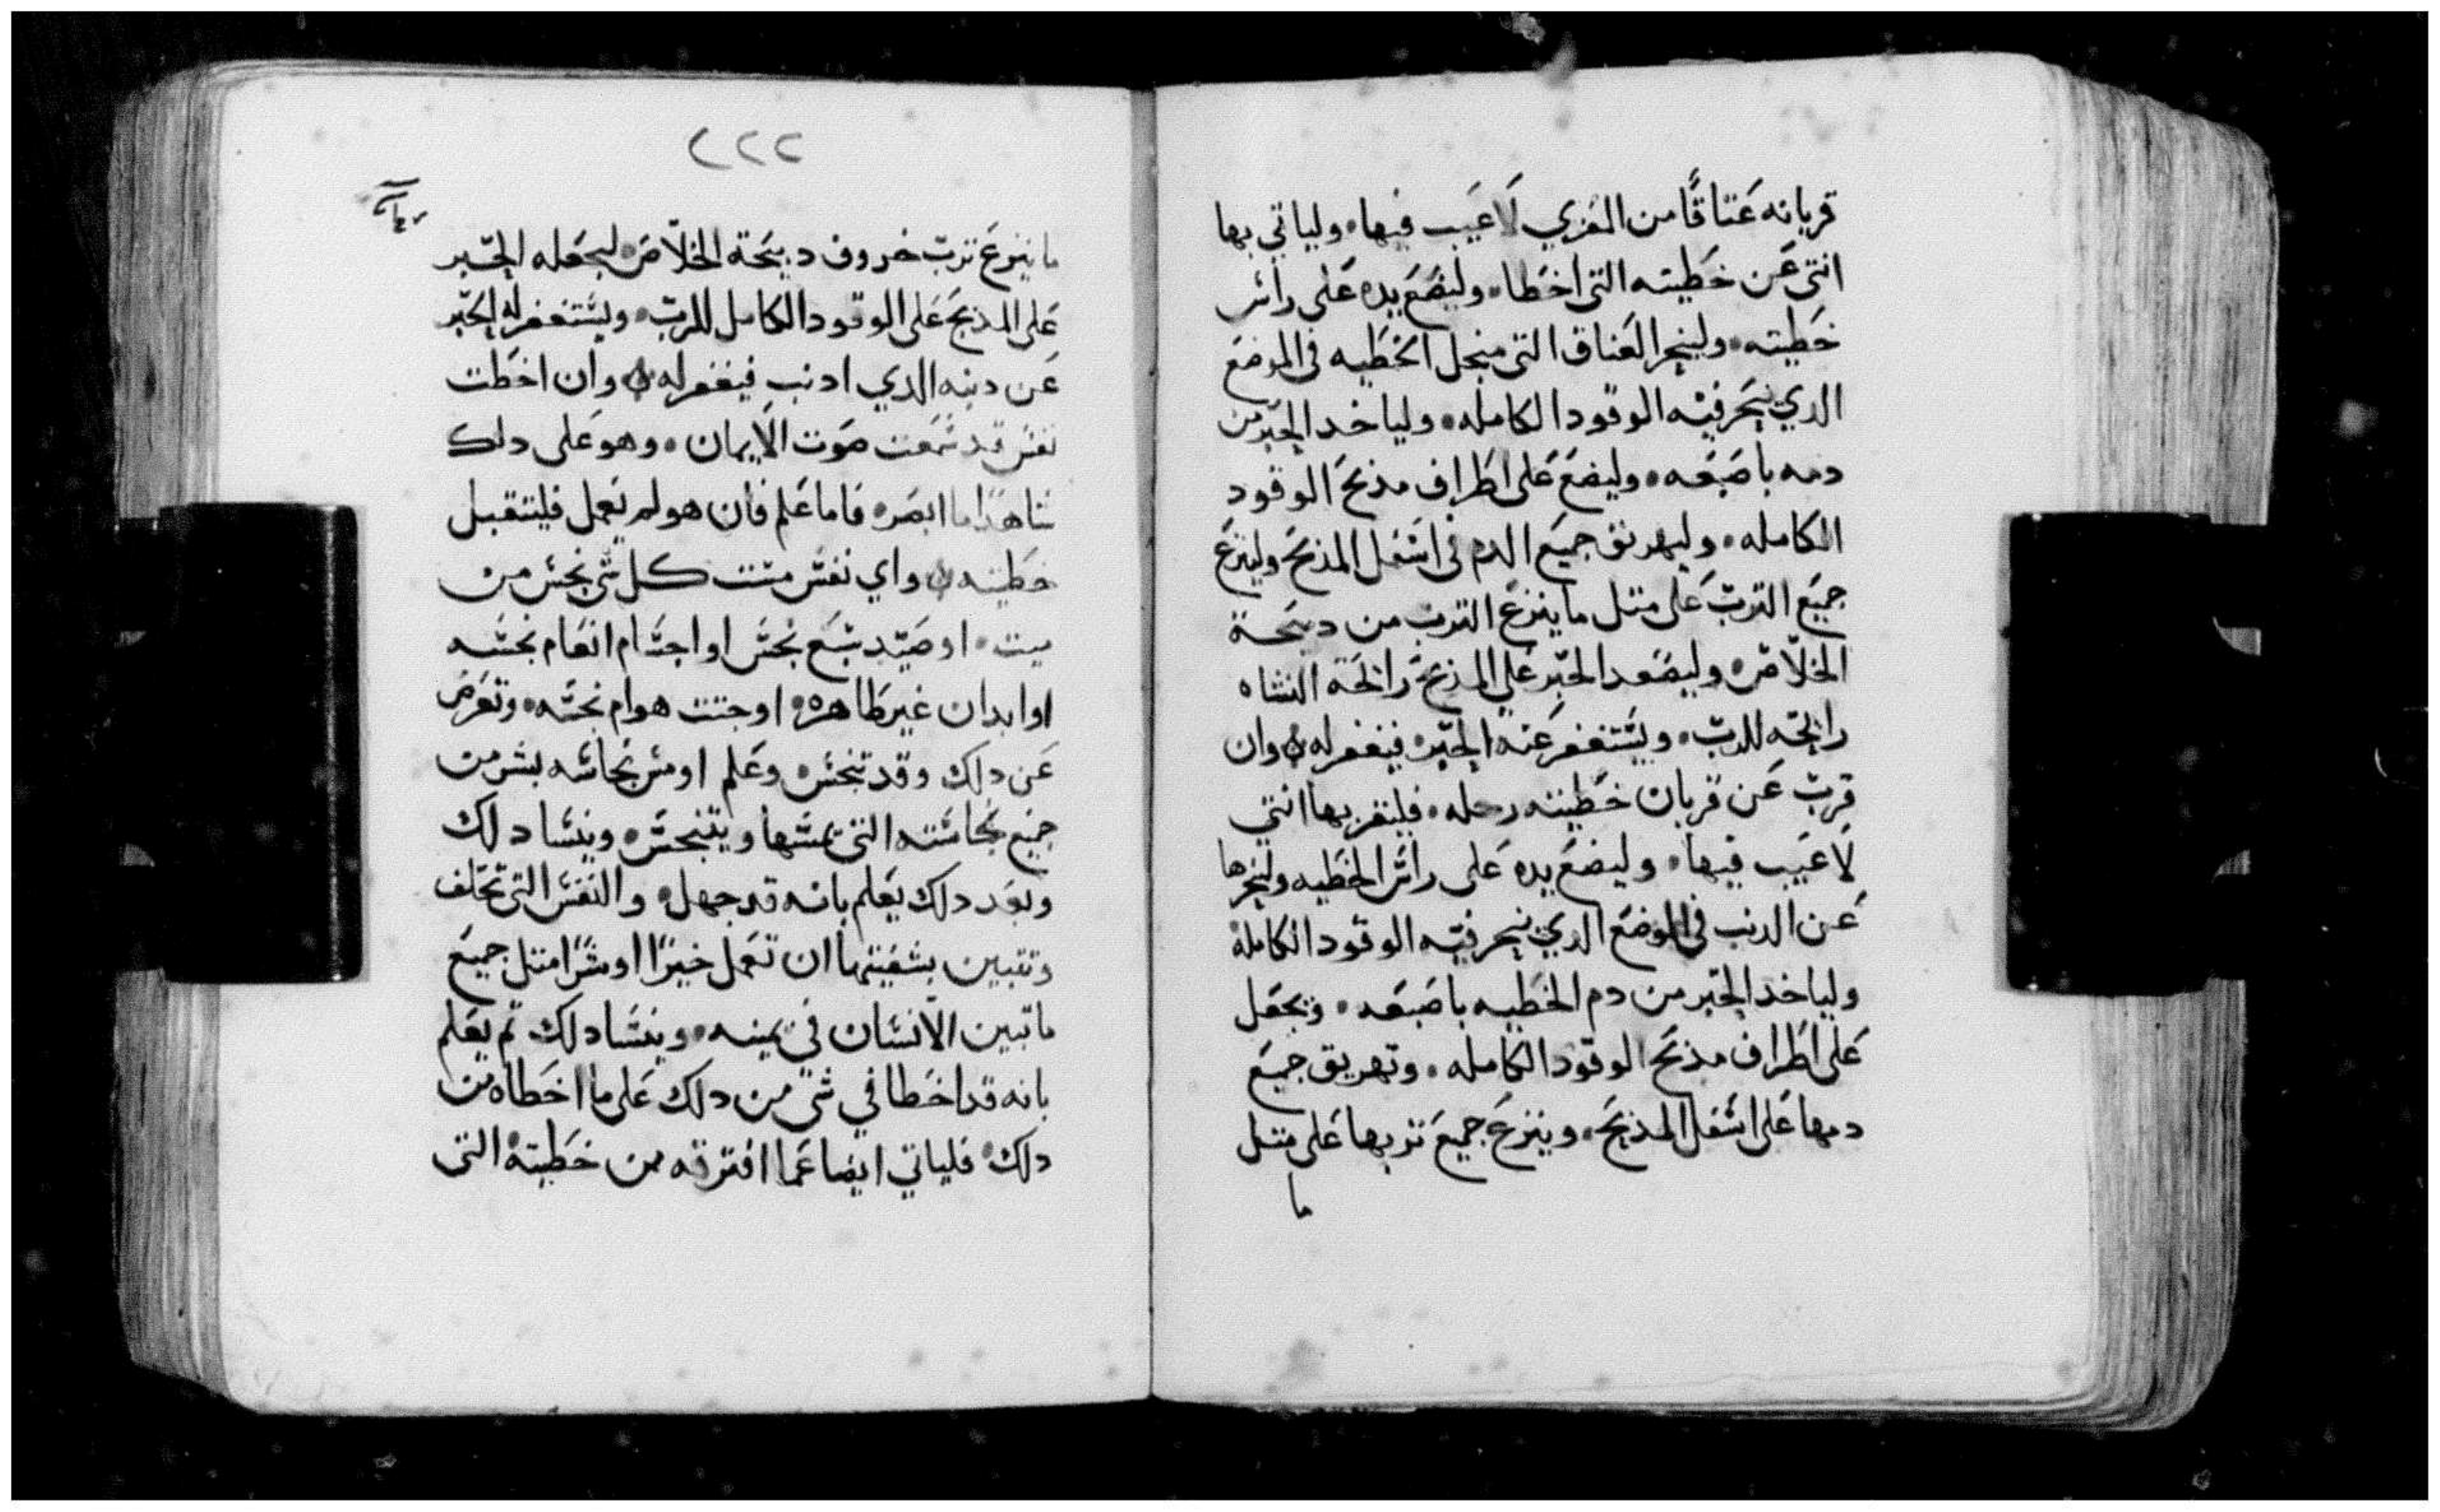 قربانه عَتاقًا من المَزي لَاعَيب فيها، ولياتي بها
انتى عَن خطيته التى اخطا، وليضَع يده عَلى رائس
خطيته، ولينحر العَناق التى منجل الخطيه فى الموضع
الدي ينحَر فيه الوقود الكامله، ولياخد الحَبر من
دمه باصبَعه، وليضع عَلى اطراف مذبحَ الوقود
الكامله، وليهريق جميَع الدم فى اسفل المذبحَ ولينزع
جميَع الترب عَلى متل ما ينزع الترب من دبيحَة
الخلاص، وليصَعد الحَبر عَلى المذبحَ رائحَة النشاه
رائحَه للرب، ويستغفر عَنه الحَبر، فيغفر له وان
قرب عَن قربان خطيته رحله، فليقربها انتي
لاعَيب فيها، وليضع يده عَلى رائس الخطيه ولينحرها
عَن الدنب فى الموضع الدي ينحر فيه الوقود الكامله
ولياخد الحَبر من دم الخطيه باصبَعه، ويجعَل
عَلى اطراف مذبحَ الوقود الكامله، وتهريق جميَع
دمها عَلى اسفل المذبحَ، وينزعَ جميعَ تربها عَلى متل
ما
٢٢٢
ما ينزعَ ترب خروف دبيحَة الخلاص، ليجعَله الحَبر
عَلى المذبحَ عَلى الوقود الكامل للرب، ويستغفر له الحَبر
عَن دنبه الدي ادنب فيغفر له وان اخطت
نفس قد سمَعَت صَوت الايمان، وهو عَلى دلك
شاهدًا ما ابصَره فاما عَلم فان هو لم يعَمل فليتقبل
خطيته واي نفس مست كل شي نجس من
ميت، او صَيد سبَع نجس او اجسَام انعَام نجسَه
او ابدان غير طاهره، او جتت هوام نجسَه، وتعَرض
عَن دلك وقد تنجس، وعَلم او مس نجاسه بشر من
جميَع نجاسته التى يمسها ويتنجسَ، وينسَا دلك
وبعَد دلك يعَلم بانه قد جهل، والنفس التى تحَلف
وتتبين بشفيتها ان تعَمل خيرًا او شرًا متل جميعَ
ما تبين الانسَان فى يمينه، وينسَا دلك تم يعَلم
بانه قد اخطا في شي من دلك عَلى ما اخطاه من
دلك، فلياتي ايضا عَما افترقه من خطيته التى